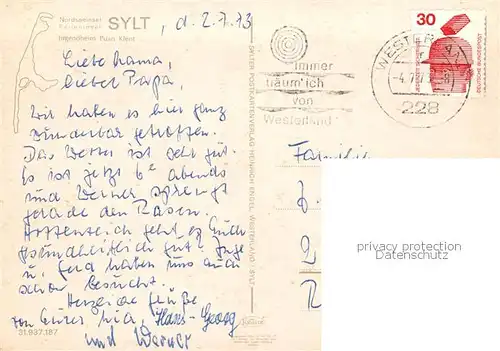 Nordseeinsel SYLT, d. 2.7.73
Ferieninsel
Jugendheim Puan Klent
Liebe Mama,
lieber Papa,
wir haben es hier ganz
wunderbar getroffen.
Das Wetter ist sehr gut.
Es ist jetzt 6º abends
und Werner sprengt
gerade den Rasen.
Hoffentlich geht es Euch
gesundheitlich gut. Inge
u. Gerd haben uns auch
schon besucht.
Herzliche Grüße
von Eurer Hans-Georg
und Werner
31.937.187
immer
träum' ich
von
Westerland
WESTERLAND
-4.7.73
228
30
DEUTSCHE BUNDESPOST
Familie
privacy protection
Datenschutz